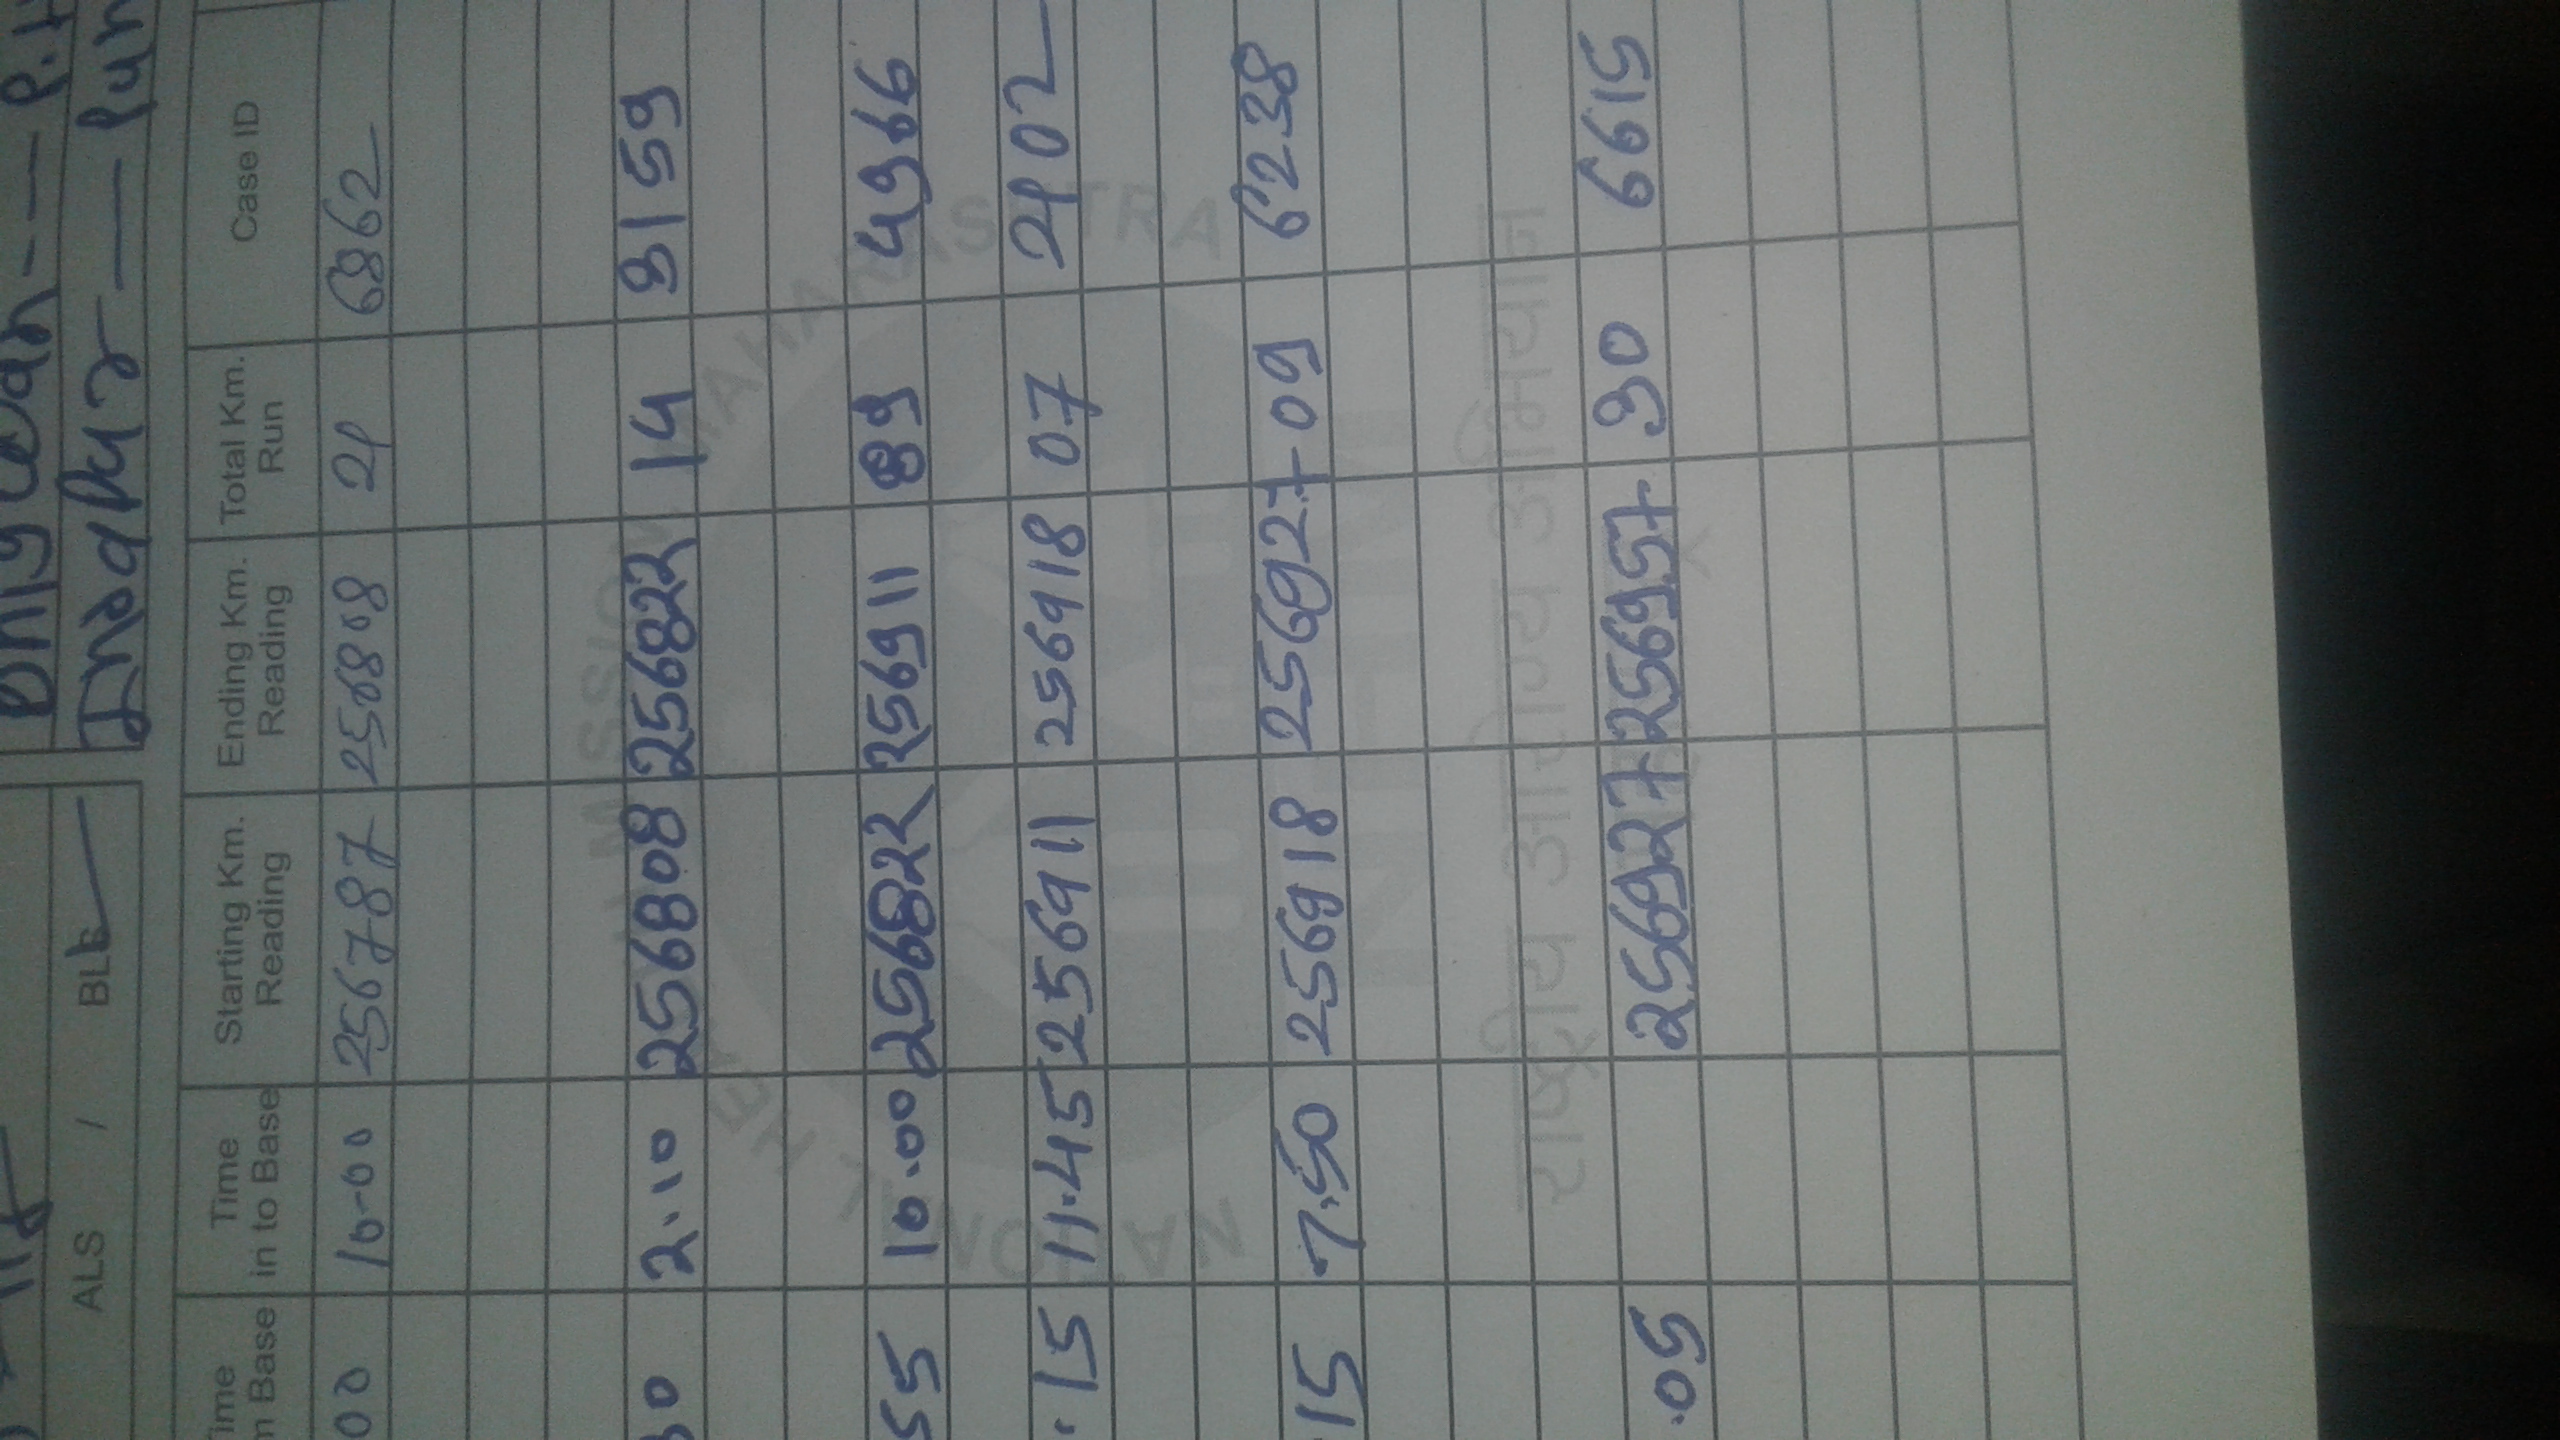 ALS / BLS
Indapur — Pun
Time in to Base Starting Km. Reading Ending Km. Reading Total Km. Run Case ID
00 10-00 256787 256808 21 6862
2.10 256808 256822 14 3159
55 10.00 256822 256911 89 4966
.15 11.45 256911 256918 07 2102
15 7.50 256918 256927 09 6238
.05 256927 256957 30 6615
NATIONAL HEALTH MISSION MAHARASHTRA
राष्ट्रीय आरोग्य अभियान